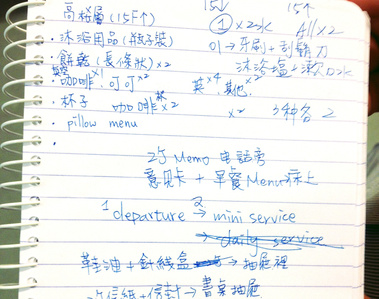 高樓層 (15F↑) 15↓ 15↑
沐浴用品 (瓶子裝) ① x2 All x2
・餅乾 (長條狀) x2 牙刷 + 刮鬍刀
・咖啡 x1 可可 x2 茶 x4 其他 x2 沐浴鹽
・杯子 咖啡 x2 x2 3種各2
・pillow menu
2張 Memo 电話旁
意見卡 + 早餐Menu床上
1 departure 2 → mini service
→ daily service
鞋油 + 針線盒 → 抽屜裡
信紙 + 信封 → 書桌抽屜